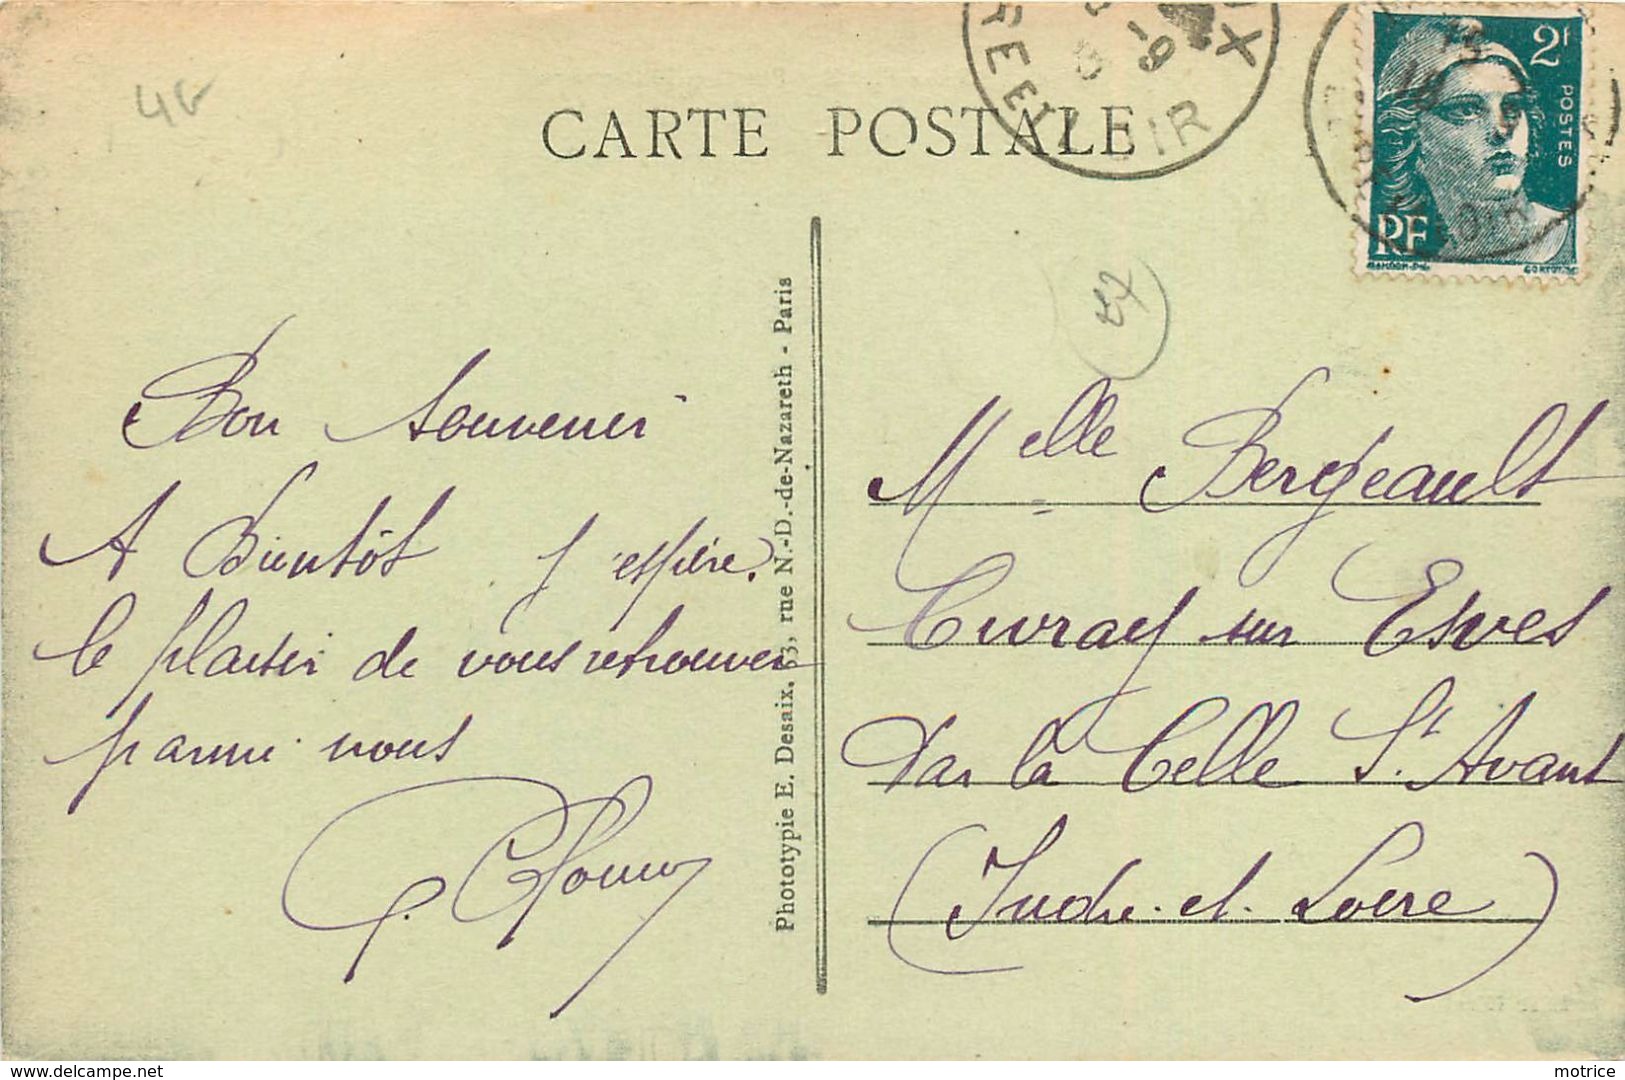 4G
CARTE POSTALE
EURE ET LOIR
2F
POSTES
RF
27
Bon souvenir
A Bientôt j'espère.
le plaisir de vous retrouver
parmi nous
Phototypie E. Desaix, 63, rue N.-D.-de-Nazareth - Paris
Melle Bergeault
Civray sur Esves
Par la Celle St. Avant
(Indre-et-Loire)
www.delcampe.net
motrice